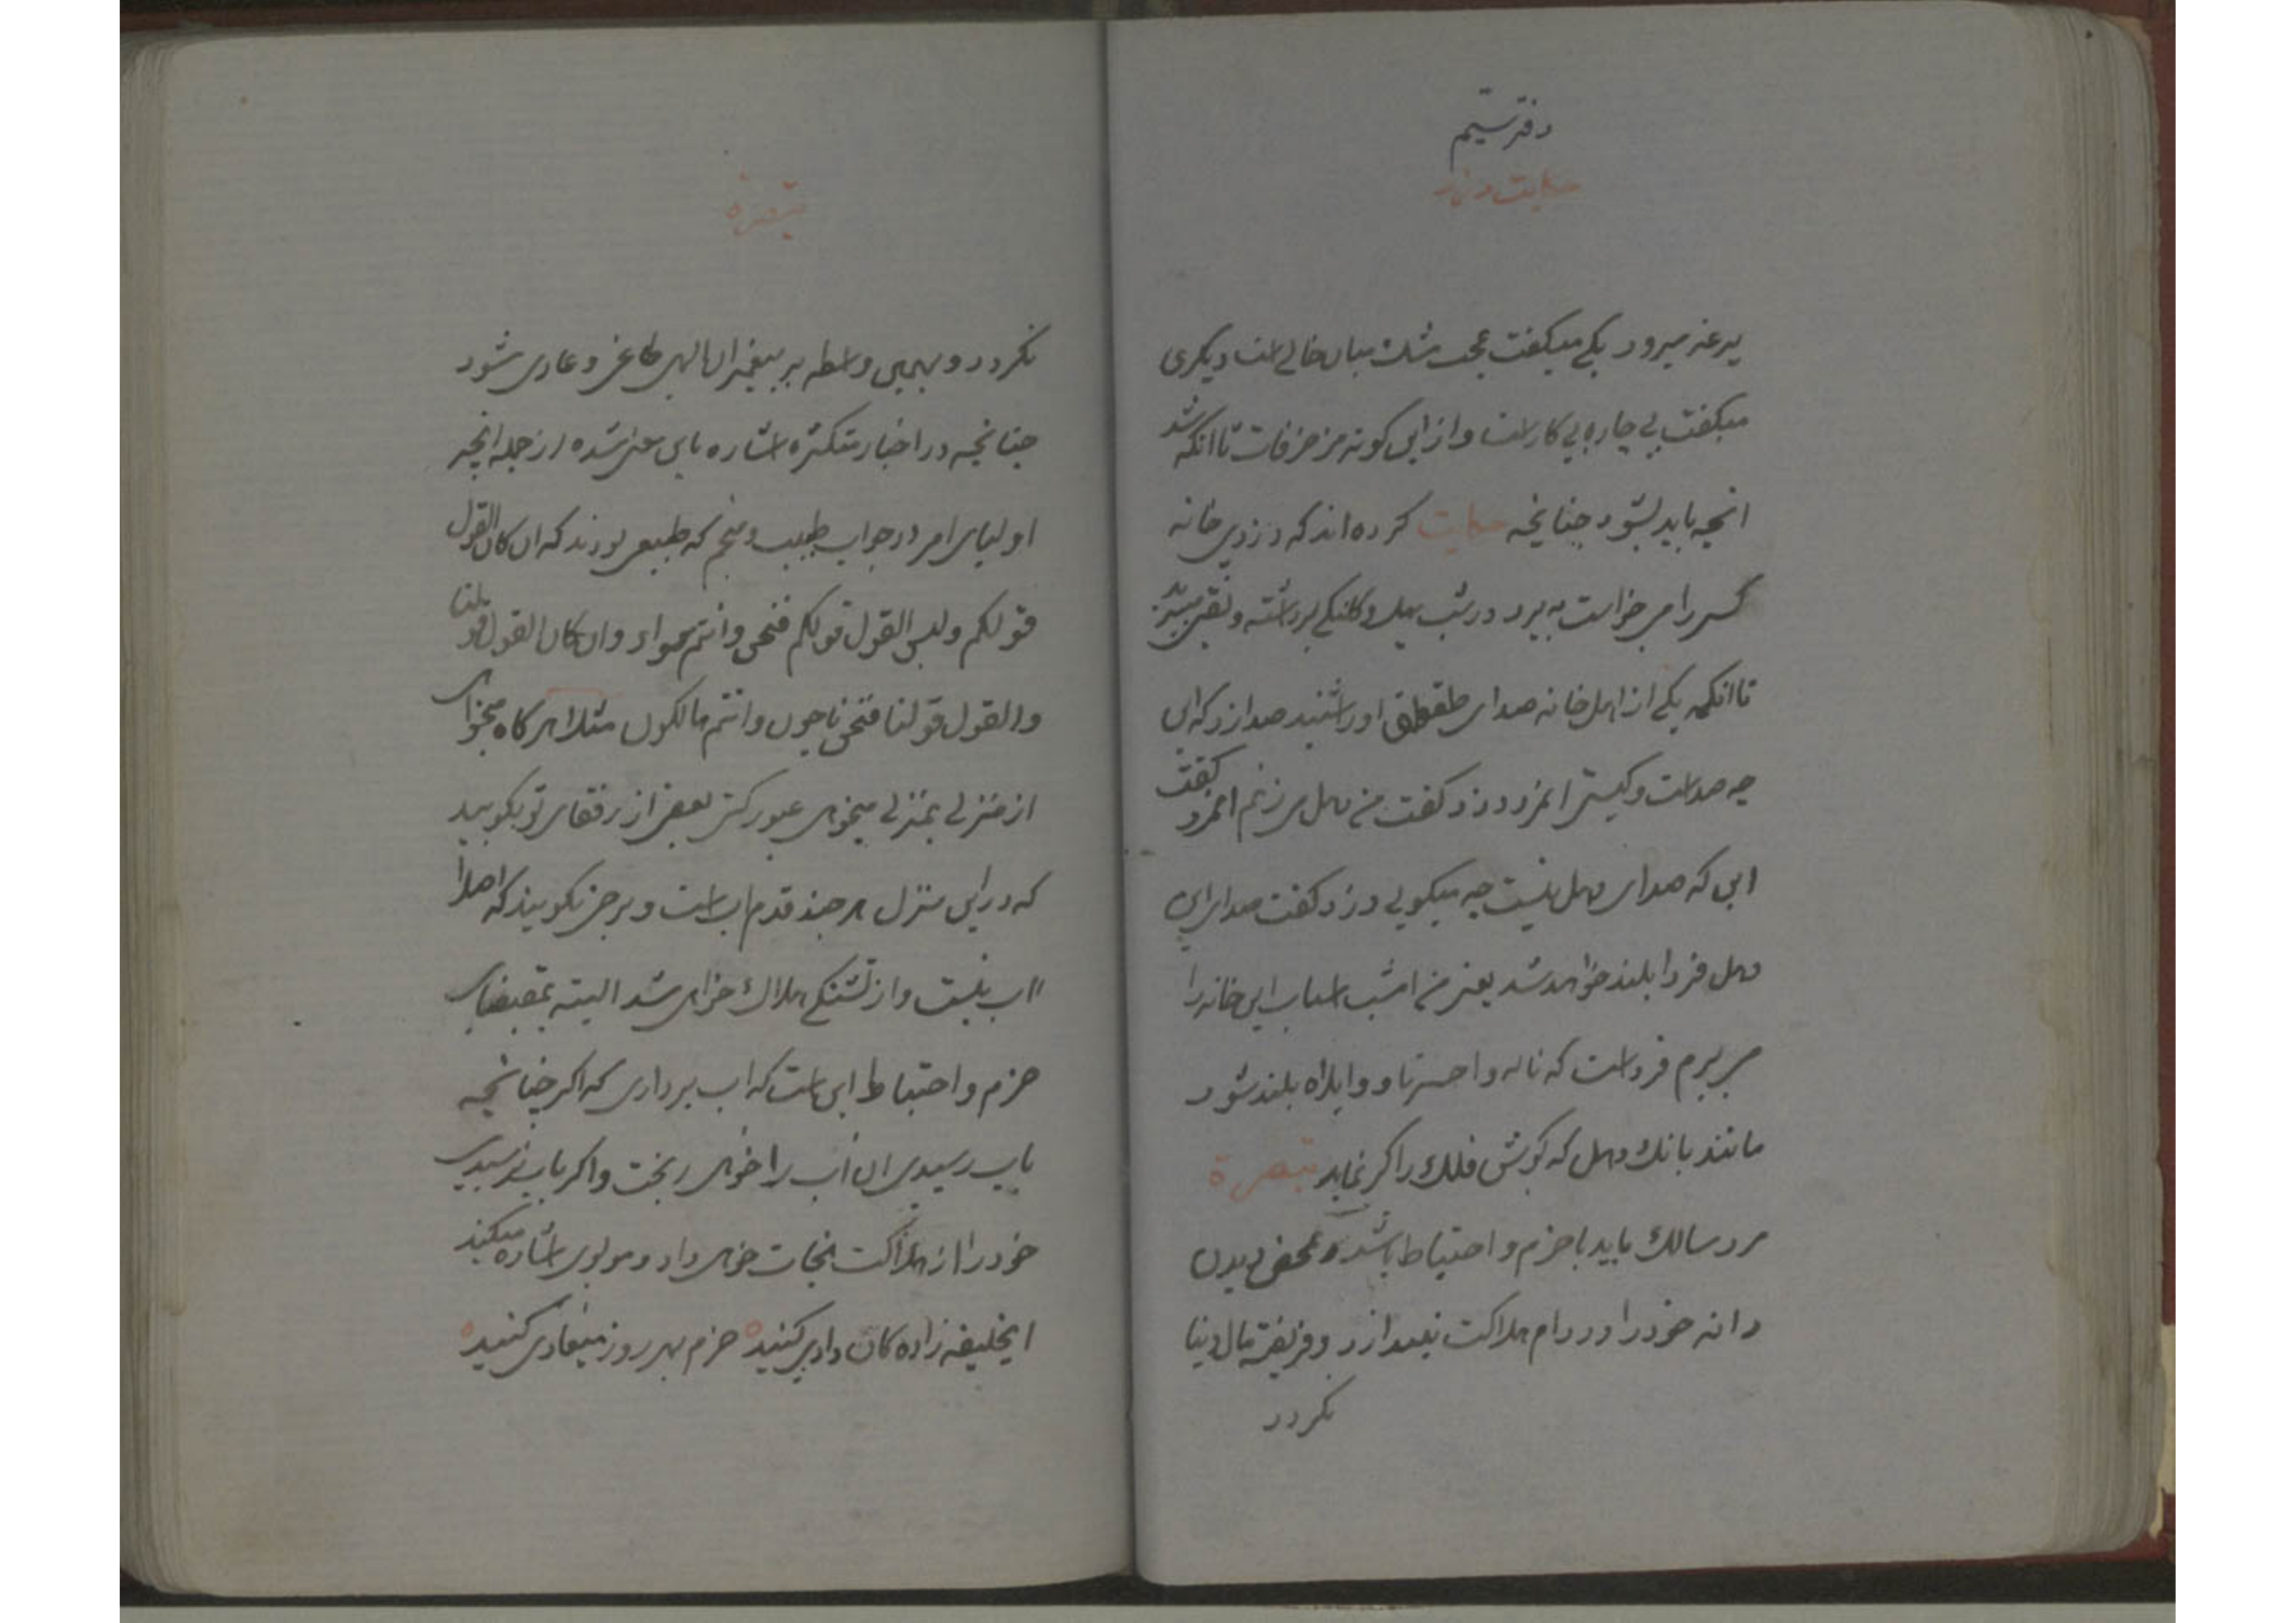 دفتر سیم
حکایت دزد
میرود یکی میکفت عجب مشک میان خالی است دیکری
میکفت بی چاره بی کار است و از این کونه مزخرفات تا انکه شد
انچه باید بشود چنانچه حکایت کرده اند که دزدی خانه
کسی را می خواست به برد در شب بیل و کلنکی برداشته و نقب میزد
تا انکه یکی از اهل خانه صدای طقطق او را شنید صدا زد که این
چه صداست و کیستی ایمرد دزد کفت من دهل می زنم ایمرد کفت
این که صدای دهل نیست چه میکویی دزد کفت صدای این
دهل فردا بلند خواهد شد یعنی من امشب اسباب این خانه را
می برم فرداست که ناله وا حسرتا و واویلاه بلند شود
مانند بانک دهل که کوش فلک را کر نماید تبصرة
مرد سالک باید با حزم و احتیاط باشد و بمحض دیدن
دانه خود را در دام هلاکت نیندازد و فریفته مال دنیا
نکردد
تبصرة
نکردد و بهمین واسطه بر پیغمبران الهی طاغی و عادی شود
چنانچه در اخبار متکثره اشاره باین معنی شده از جمله انچه
اولیای امر در جواب طبیب و منجم که طبیعی بودند که ان کان القول
قولکم ولیس القول قولکم فنحن وانتم سواء وان کان القول قولنا
والقول قولنا فنحن ناجون وانتم هالکون مثلا هر کاه میخواهی
از منزلی بمنزلی میخواهی عبور کنی بعضی از رفقای تو بکویید
که در این منزل هر چند قدم اب است و برخی بکویند که اصلا
اب نیست و از تشنکی هلاک خواهی شد البته بمقتضای
حزم و احتیاط این است که اب برداری که اکر چنانچه
باب رسیدی ان اب را خواهی ریخت و اکر باب نرسیدی
خود را از هلاکت نجات خواهی داد و مولوی اشاره میکند
ایخلیفه زاده کان دادی کنید حزم بهر روز میعادی کنید